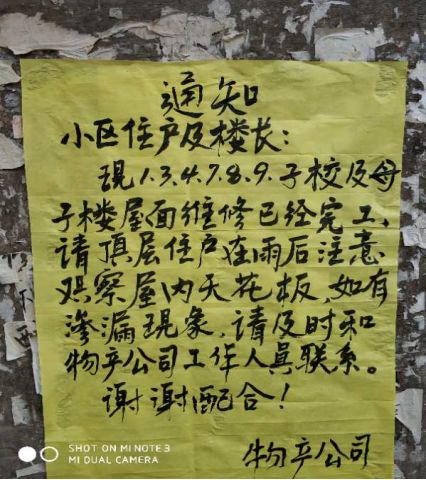 通知
小区住户及楼长：
现1.3.4.7.8.9.子校及母
子楼屋面维修已经完工，
请顶层住户在雨后注意
观察屋内天花板，如有
渗漏现象，请及时和
物产公司工作人员联系。
谢谢配合！
物产公司
SHOT ON MI NOTE 3
MI DUAL CAMERA